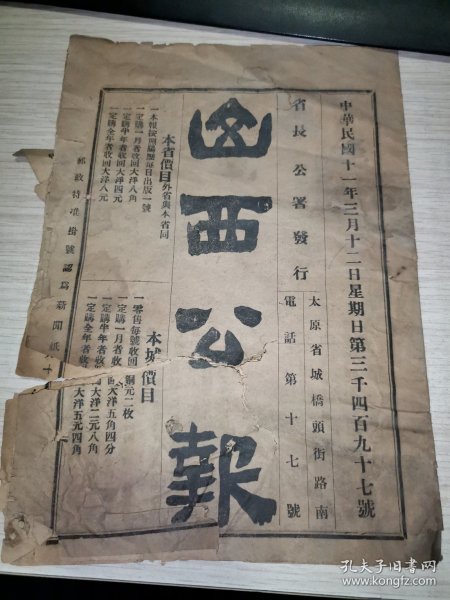 中華民國十一年三月十二日星期日第三千四百九十七號
省長公署發行
太原省城橋頭街路南
電話第十七號
山西公報
本省價目外省與本省同
一本報按照陽曆每日出版一號
一定購一月者收回大洋八角
一定購半年者收回大洋四元
一定購全年者收回大洋八元
本城價目
一零售每號收回銅元二枚
一定購一月者收回大洋五角四分
一定購半年者收回大洋二元八角
一定購全年者收回大洋五元四角
郵政特准掛號認爲新聞紙
孔夫子旧书网
www.kongfz.com